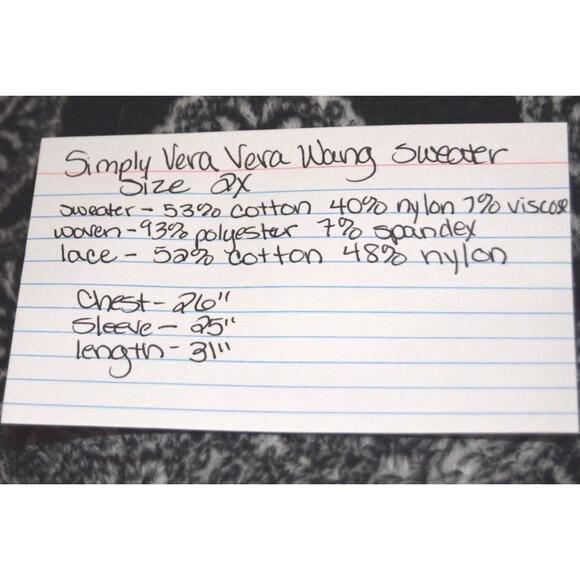 Simply Vera Vera Wang Sweater
Size 2X
sweater - 53% cotton 40% nylon 7% viscose
woven - 93% polyester 7% spandex
lace - 52% cotton 48% nylon
Chest - 26"
Sleeve - 25"
length - 31"